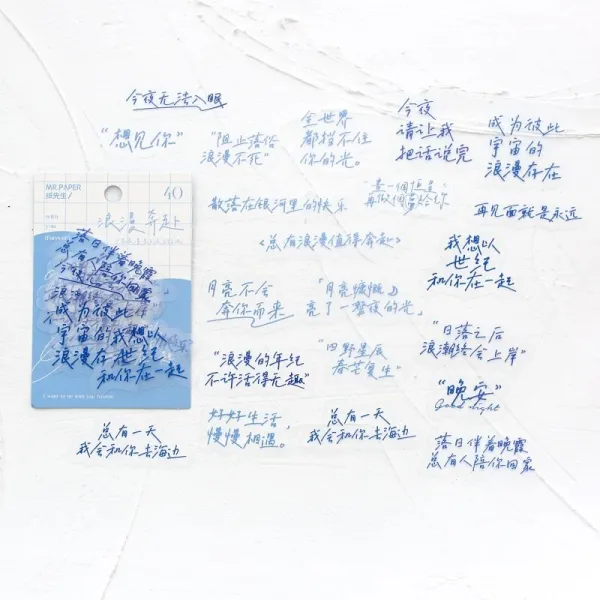 今夜无法入眠
“想见你”
“阻止落俗
浪漫不死”
全世界
都挡不住
你的光。
今夜
请让我
把话说完
成为彼此
宇宙的
浪漫存在
散落在银河里的快乐
再见面就是永远
<总有浪漫值得奔赴>
我想以
世纪
和你在一起
MR.PAPER
纸先生/
40
浪漫奔赴
落日伴着晚霞
总有人陪你回家
成为彼此
宇宙的我想以
浪漫存世纪
和你在一起
月亮不会
奔你而来
“月亮慷慨
亮了一整夜的光,
“浪漫的年纪
不许活得无趣”
“田野星辰
春芒复生”
“日落之后
浪潮终会上岸”
“晚安”
Good night
好好生活,
慢慢相遇。
总有一天
我会和你去海边
总有一天
我会和你去海边
落日伴着晚霞
总有人陪你回家